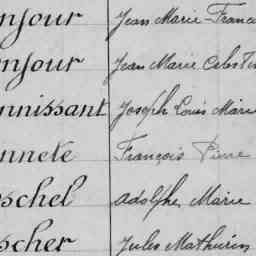 onjour Jean Marie Franc
onjour Jean Marie Celest
onnissant Joseph Louis Marie
onnete François Pierre
oschel Adolphe Marie
scher Jules Mathurin